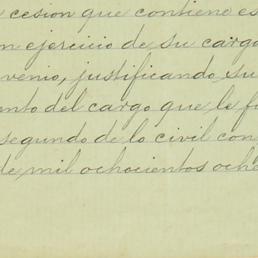 cesion que contiene es
n ejercicio de su cargo
venio, justificando su
nto del cargo que le fu
segundo de lo civil con
de mil ochocientos oche